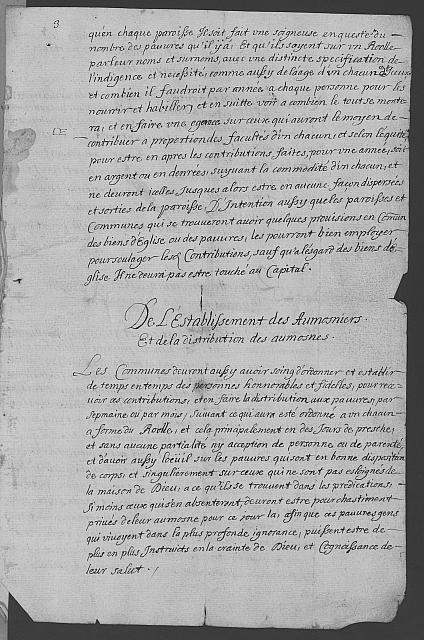 3
qu'en chaque paroisse Il soit fait une soigneuse enqueste du
nombre des pauvres qu'il y à; Et qu'ils soyent sur vn Roolle
par leur noms et surnoms, avec vne distincte specification de
l'indigence et necessité, comme aussy de l'aage d'vn chacun d'iceux
et combien il faudroit par année a chaque personne pour les
nourrir et habiller, et en suitte voir a combien le tout se monte
ra, et en faire vne sur ceux qui auront le moyen de
contribuer a proportion des facultés d'vn chacun et selon l'équité
pour estre en apres les contributions faites, pour vne année, soit
en argent ou en denrées, suyvant la commodité d'vn chacun, et
ne devront icelles Jusques alors estre en aucune façon dispersées
et sorties de la paroisse, D'Intention aussy que les paroisses et
Communes qui se trouveront avoir quelques provisions en Comun
des biens d'Eglise ou des pauvres, les pourront bien employer
pour soulager les Contributions, sauf qu'a l'esgard des biens d'E
glise Il ne devra pas estre touché au Capital.
De L'Establissement des Aumosniers.
Et de la distribution des aumosnes.
Les Communes devront aussy avoir soing d'ordonner et establir
de temps en temps des personnes honnorables et fidelles, pour rece-
voir ces contributions, et en faire la distribution aux pauvres, par
Sepmaine ou par mois, Suivant ce qui aura esté ordonné a vn chacun
a forme du Roolle, et cela principalement en des Jours de presche,
et sans aucune partialité ny acception de personne ou de parenté,
et d'avoir aussy l'oeüil sur les pauvres qui sont en bonne disposition
de corps, et singulièrement sur ceux qui ne sont pas esloignés de
la maison de Dieu, a ce qu'ils se trouvent dans les prédications,
Si moins ceux qui s'en absenteront, devront estre pour chastiment
privés de leur aumosne pour ce jour la, afin que ces pauvres gens
qui vivoyent dans la plus profonde ignorance, puissent estre de
plus en plus Instruits en la crainte de Dieu, et Cognoissance de
leur salut.